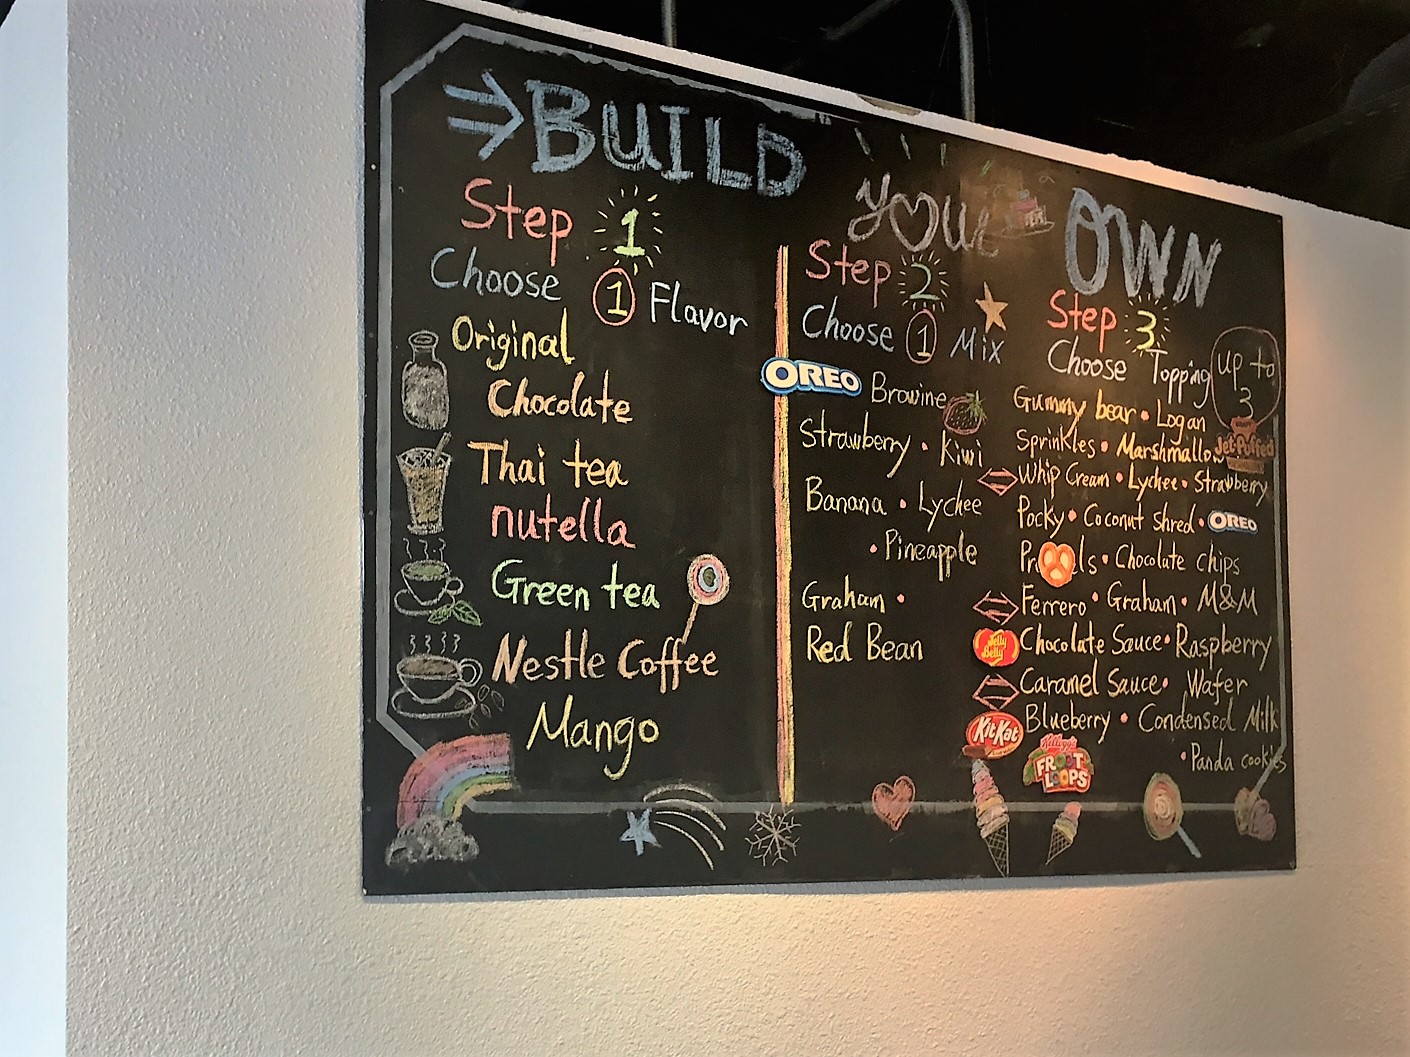 ⇒BUILD YOUR OWN
Step 1
Choose 1 Flavor
Original
Chocolate
Thai tea
nutella
Green tea
Nestle Coffee
Mango
Step 2
Choose 1 Mix
OREO Browine
Strawberry • Kiwi
Banana • Lychee
• Pineapple
Graham •
Red Bean
Step 3
Choose Topping up to 3
Gummy bear • Logan
Sprinkles • Marshmallow Jet-Puffed
Whip Cream • Lychee • Strawberry
Pocky • Coconut Shred • OREO
Pr ls • Chocolate chips
Ferrero • Graham • M&M
Jelly Belly Chocolate Sauce • Raspberry
Caramel Sauce • Wafer
KitKat Blueberry • Condensed Milk
Kellogg's FROOT LOOPS • Panda cookies